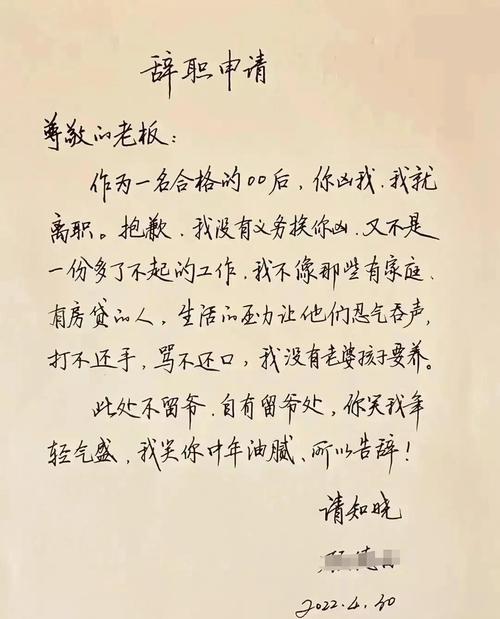 辞职申请
尊敬的老板：
作为一名合格的00后，你凶我，我就
离职。抱歉，我没有义务挨你凶，又不是
一份多了不起的工作，我不像那些有家庭、
有房贷的人，生活的压力让他们忍气吞声，
打不还手，骂不还口，我没有老婆孩子要养。
此处不留爷，自有留爷处，你笑我年
轻气盛，我笑你中年油腻、所以告辞！
请知晓
2022.4.30